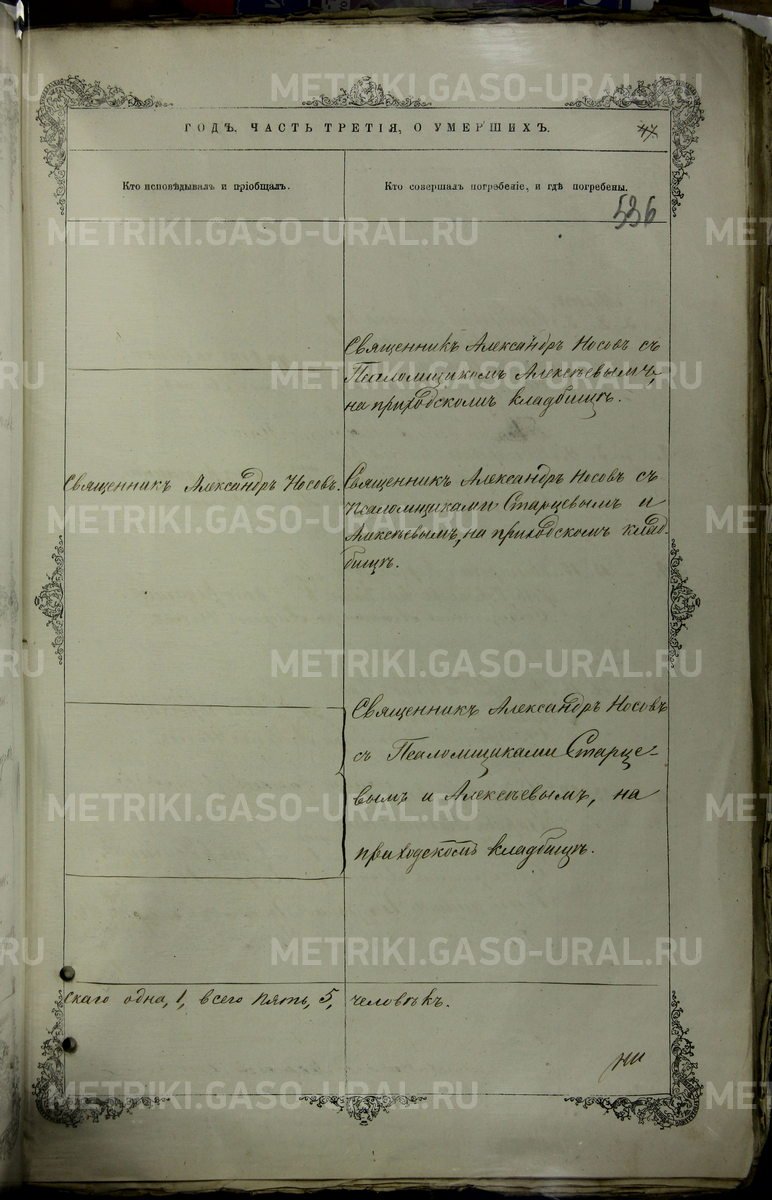 ГОДЪ. ЧАСТЬ ТРЕТІЯ, О УМЕРШИХЪ.
47
Кто исповѣдывалъ и пріобщалъ.
Кто совершалъ погребеніе, и гдѣ погребены.
536
Священникъ Александръ Носовъ съ
Псаломщикомъ Алексѣевымъ,
на приходскомъ кладбищѣ.
Священникъ Александръ Носовъ.
Священникъ Александръ Носовъ съ
псаломщиками Старцевымъ и
Алексѣевымъ, на приходскомъ клад-
бищѣ.
Священникъ Александръ Носовъ
съ Псаломщиками Старце-
вымъ и Алексѣевымъ, на
приходскомъ кладбищѣ.
скаго одна, 1, всего пять, 5, человѣкъ.
METRIKI.GASO-URAL.RU